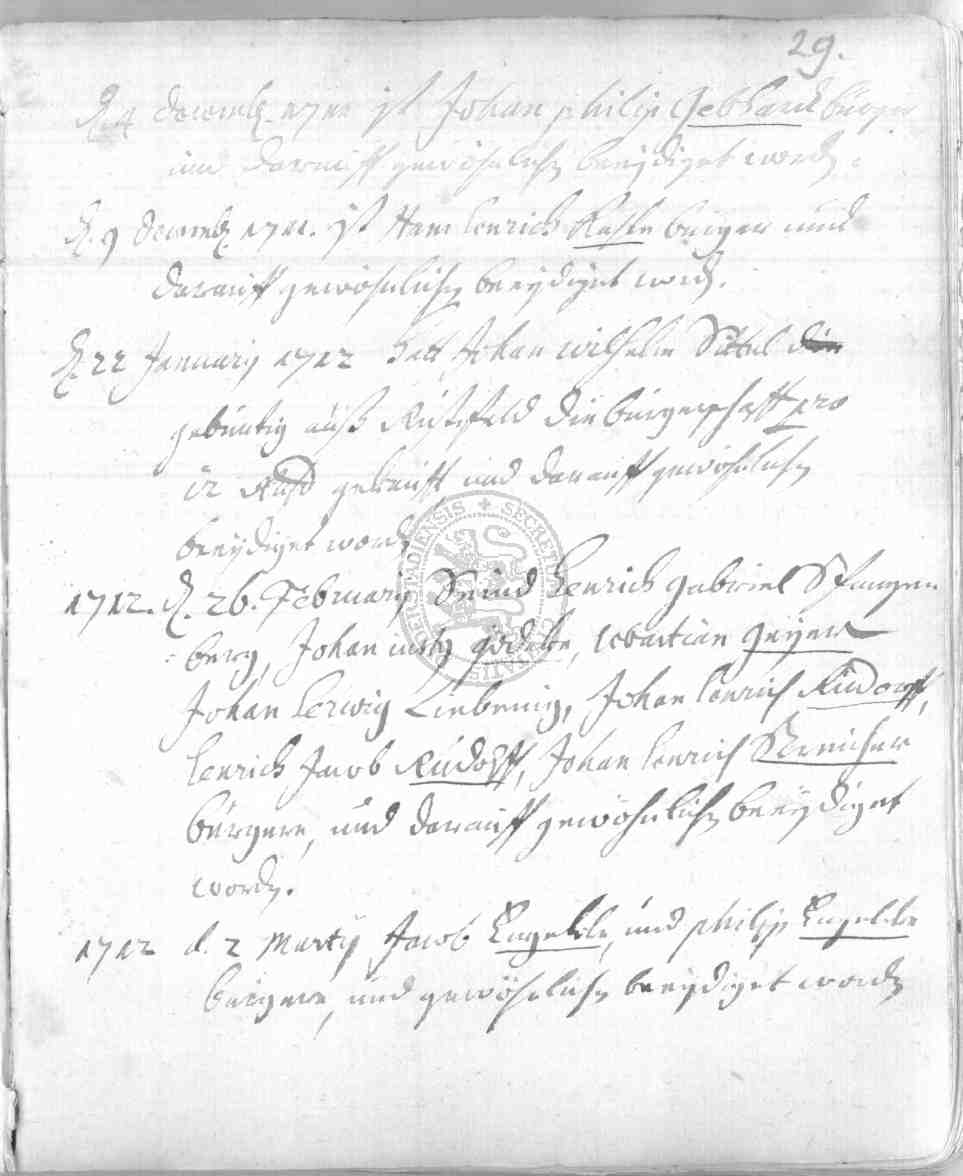 29.
d. 4 Decemb. 1711 ist Johan philip Gebhard bürger
und darauff gewöhnlich beeÿdiget word.
d. 9 Decemb. 1711. ist Hans Henrich bürger und
darauff gewöhnlich beeÿdiget word.
d. 22 January 1712 hatt Johan Wilhelm Sittel
gebürtig auß die bürgerschafft pro
12 gekaufft und darauff gewöhnlich
beeÿdiget word
1712. d. 26. February Seind Henrich Gabriel Spangen-
berg, Johan Gödeke, Sebastian Geÿer
Johan Herwig Liebenig, Johan Henrich Rudorff,
Henrich Jacob Rudolff, Johan Henrich
bürgere, und darauff gewöhnlich beeÿdiget
word.
1712 d. 2 Martÿ Jacob Engelke, und philip Engelke
bürgere, und gewöhnlich beeÿdiget word